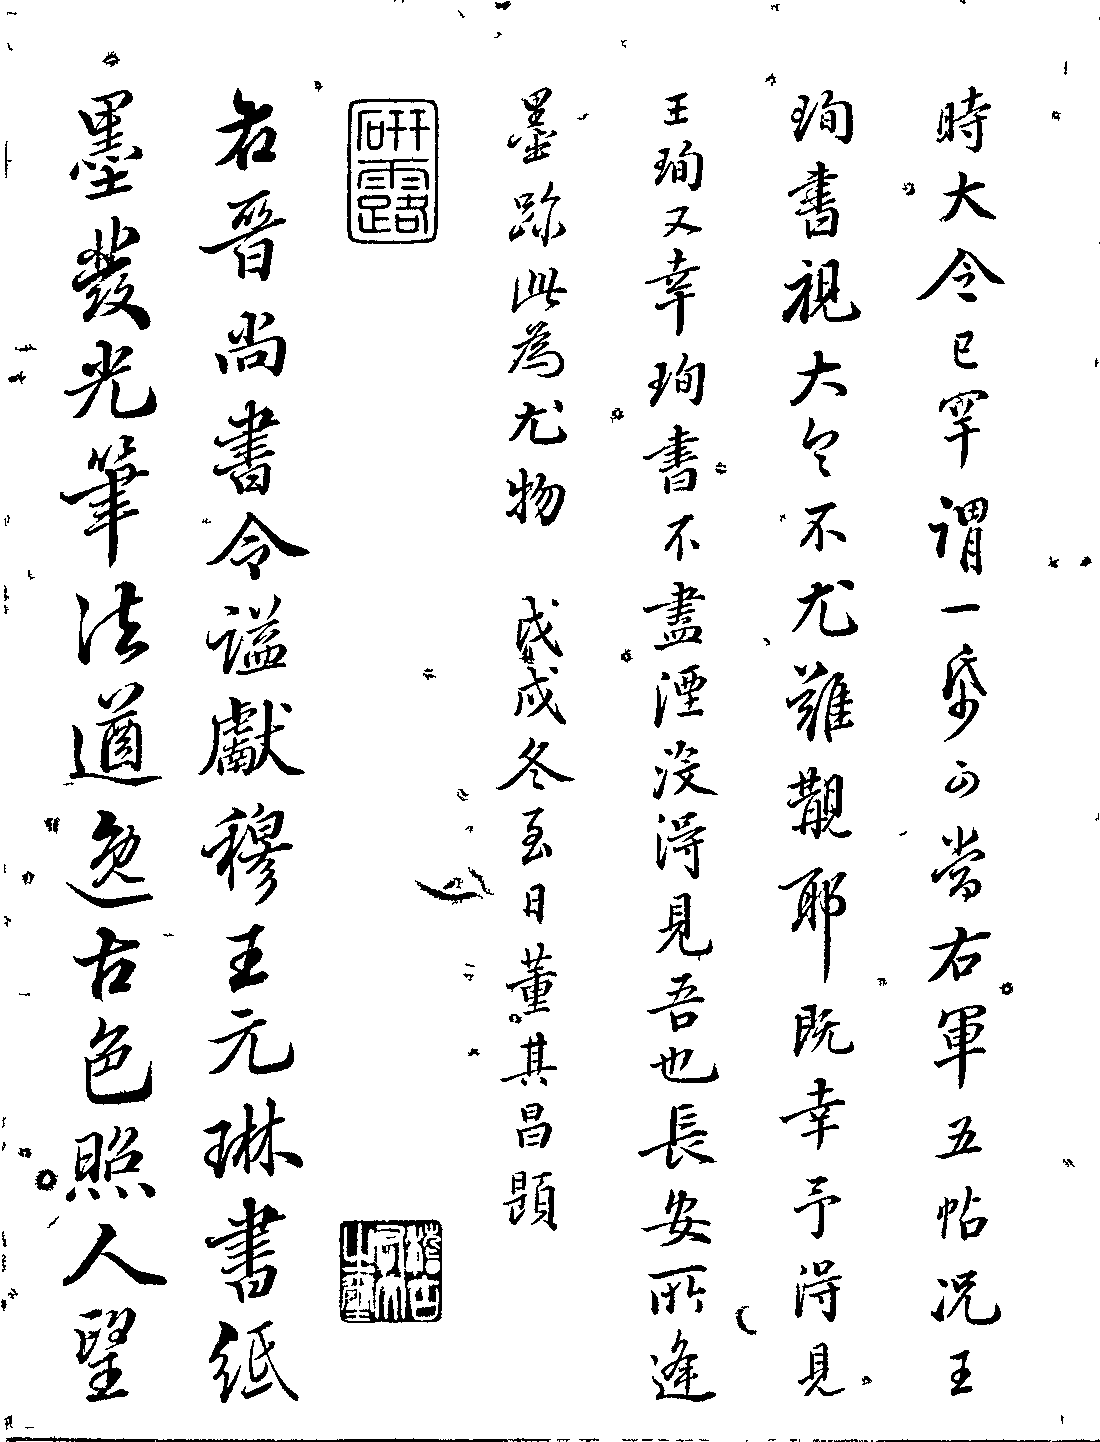 時大令已罕謂一帋可當右軍五帖况王
珣書視大令不尤難覯耶既幸予得見
王珣又幸珣書不盡湮沒得見吾也長安所逢
墨跡此為尤物 戊戌冬至日董其昌題
研露
稽古右文之璽
右晉尚書令謚獻穆王元琳書紙
墨發光筆法遒逸古色照人望